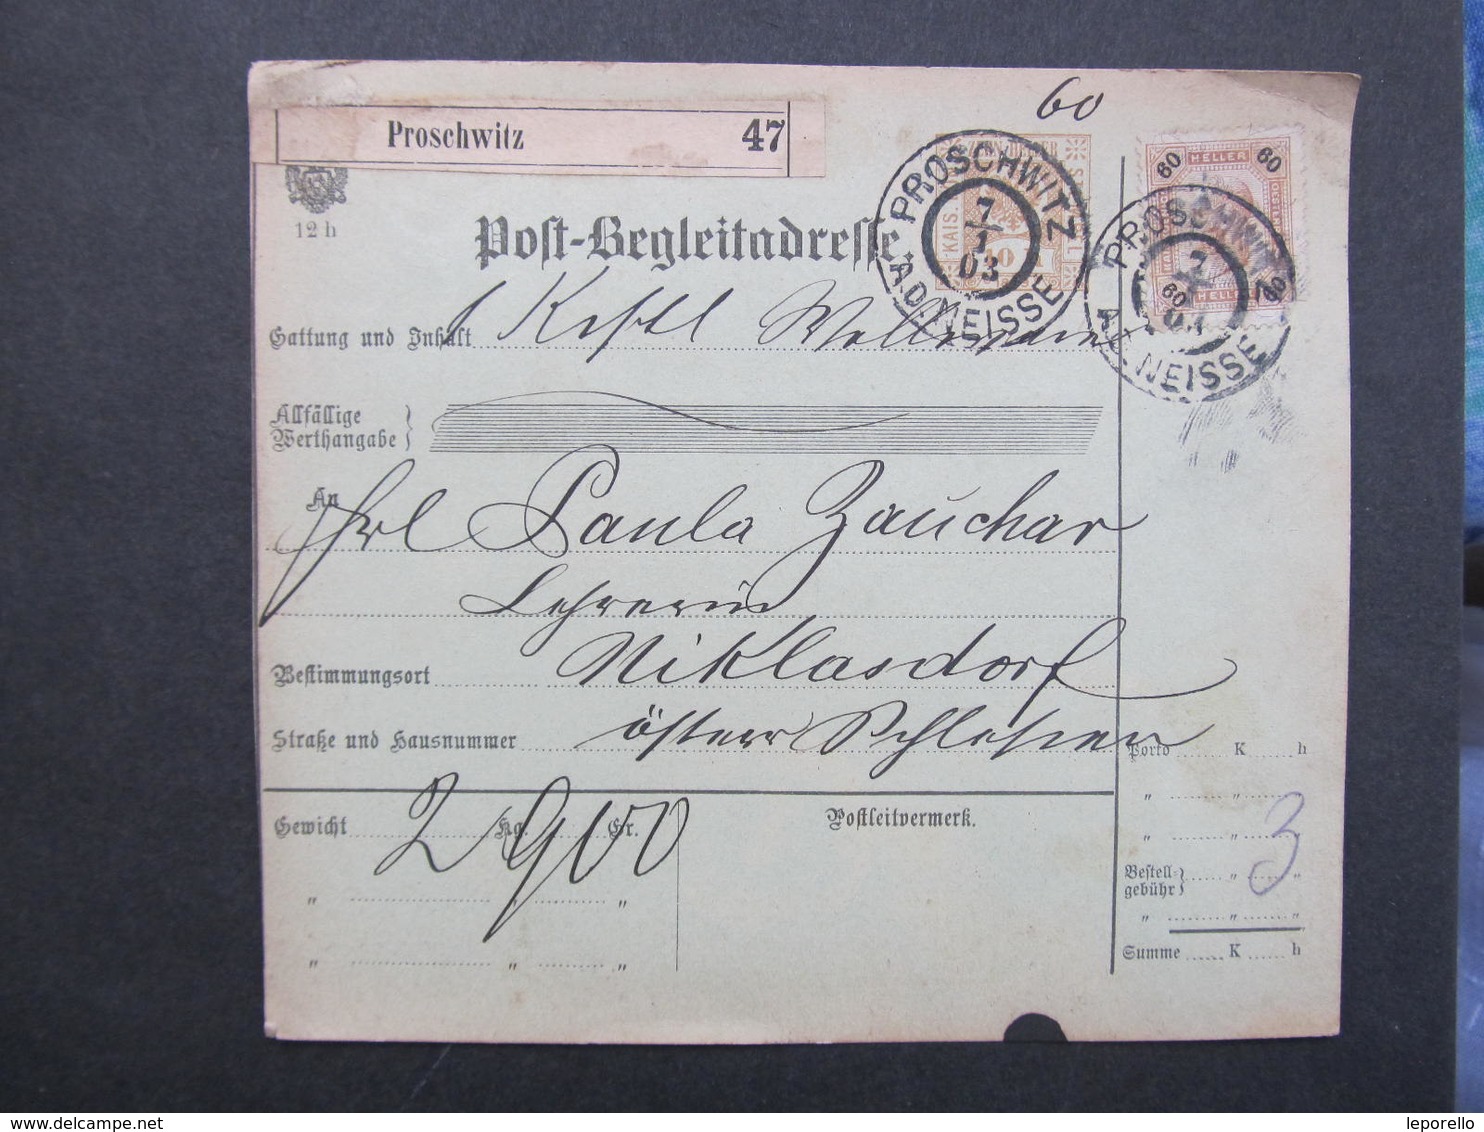 60
Proschwitz 47
ZEHN HELLER
KAIS.
10 H
PROSCHWITZ
7
1
03
A.D. NEISSE
60 HELLER 60
PROSCHWITZ
7
1
03
A.D. NEISSE
60 HELLER 60
12 h
Post-Begleitadresse.
Gattung und Inhalt 1 Kistl
Allfällige
Werthangabe
An Frl Paula Zauchar
Lehrerin
Bestimmungsort Niklasdorf
Straße und Hausnummer österr Schlesien
Porto K h
" " "
" " " 3
Gewicht 2 Kg. 900 Gr. Postleitvermerk.
Bestell-
gebühr " "
" " "
" " "
" " "
Summe K h
www.delcampe.net leporello